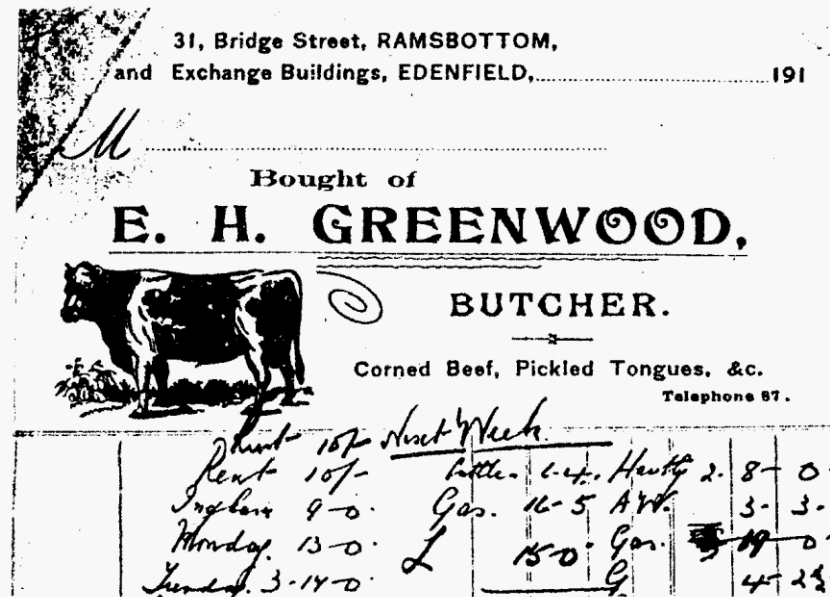 31, Bridge Street, RAMSBOTTOM,
and Exchange Buildings, EDENFIELD,..............................191
M ..............................
Bought of
E. H. GREENWOOD,
BUTCHER.
Corned Beef, Pickled Tongues, &c.
Telephone 87.
10/- Next Week.
Rent 10/- 2. 8- 0
9-0. Gas. 16-5 3- 3-
Monday. 13-0. £ 15-0. Gas. 19 0
3-14-0- 4- 2½